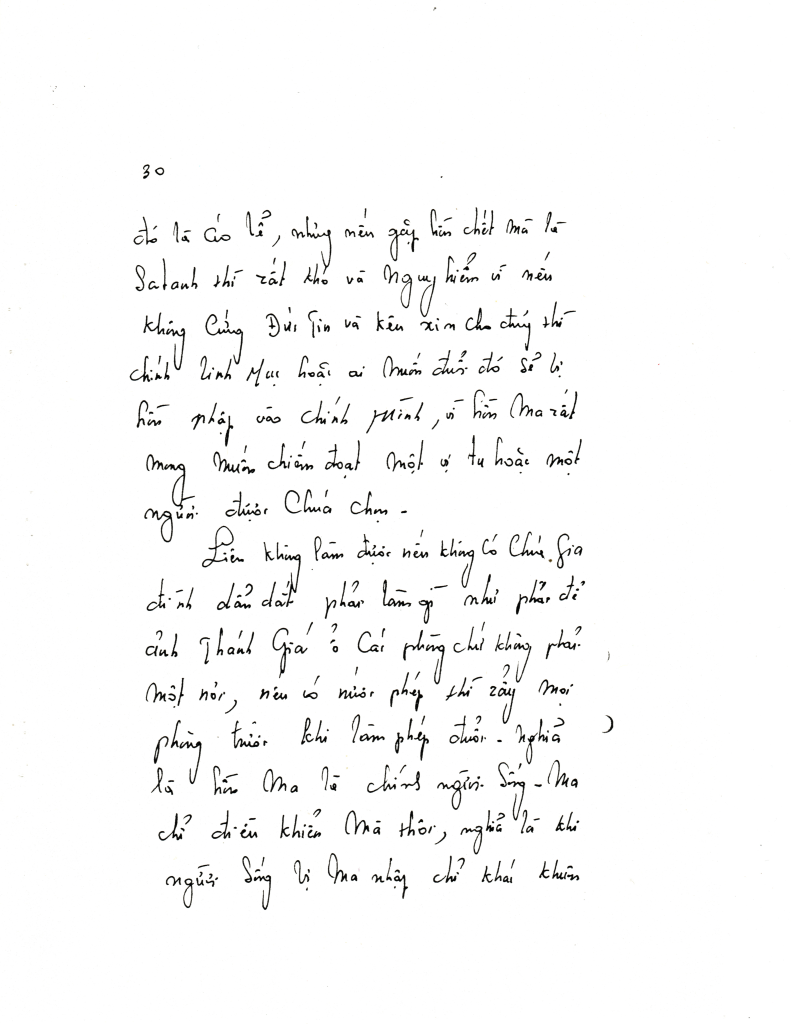 30
đó là Cáo lể, nhưng nếu gặp hồn chết mà là
Satanh thì rất khó và Nguy hiểm vì nếu
không Cứng Đức Tin và kêu xin cho đúng thì
chính Linh Mục hoặc ai Muốn đuổi đó Sẻ bị
hồn nhập vào chính Mình, vì hồn Ma rất
mong Muốn chiếm đoạt Một vị tu hoặc một
người được Chúa chọn -
không làm được nếu không Có Chúa. Gia
đình dẩn dắt phải làm gì như phải để
ảnh Thánh Giá ở Các phòng chứ không phải
Một nơi, nếu có nước phép thì rẩy mọi
phòng trước khi làm phép đuổi - Nghỉa
là hồn Ma là chính người Sống - Ma
chỉ điều khiển Mà thôi, nghỉa là khi
người Sống bị Ma nhập chỉ khác khuôn